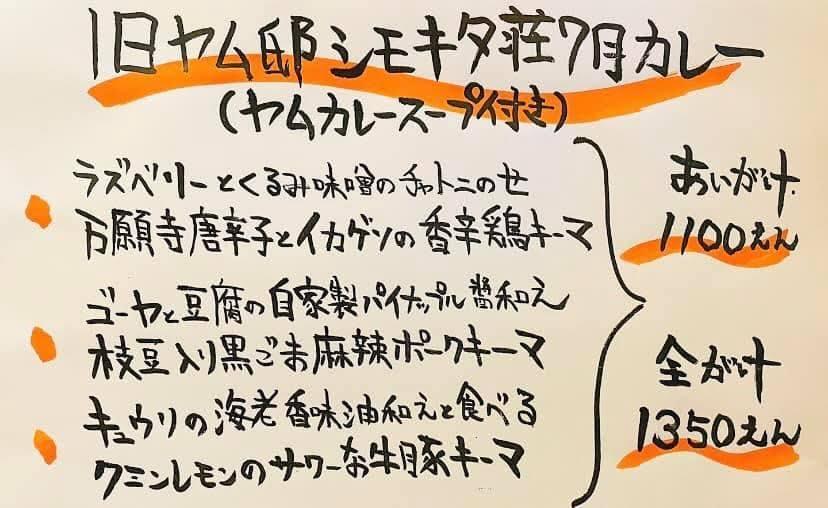 旧ヤム邸シモキタ荘7月カレー
(ヤムカレースープ付き)
ラズベリーとくるみ味噌のチャトニのせ
万願寺唐辛子とイカゲソの香辛鶏キーマ
ゴーヤと豆腐の自家製パイナップル醤和え
枝豆入り黒ごま麻辣ポークキーマ
キュウリの海老香味油和えと食べる
クミンレモンのサワーな牛豚キーマ
あいがけ
1100えん
全がけ
1350えん